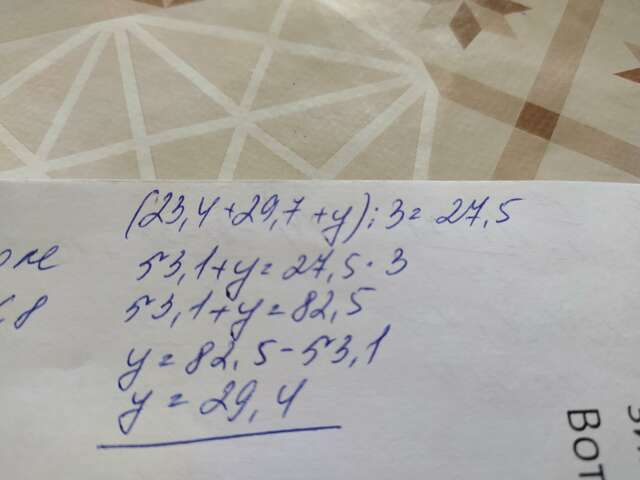 (23,4+29,7+y):3=27,5
53,1+y=27,5·3
53,1+y=82,5
y=82,5-53,1
y=29,4
Вот